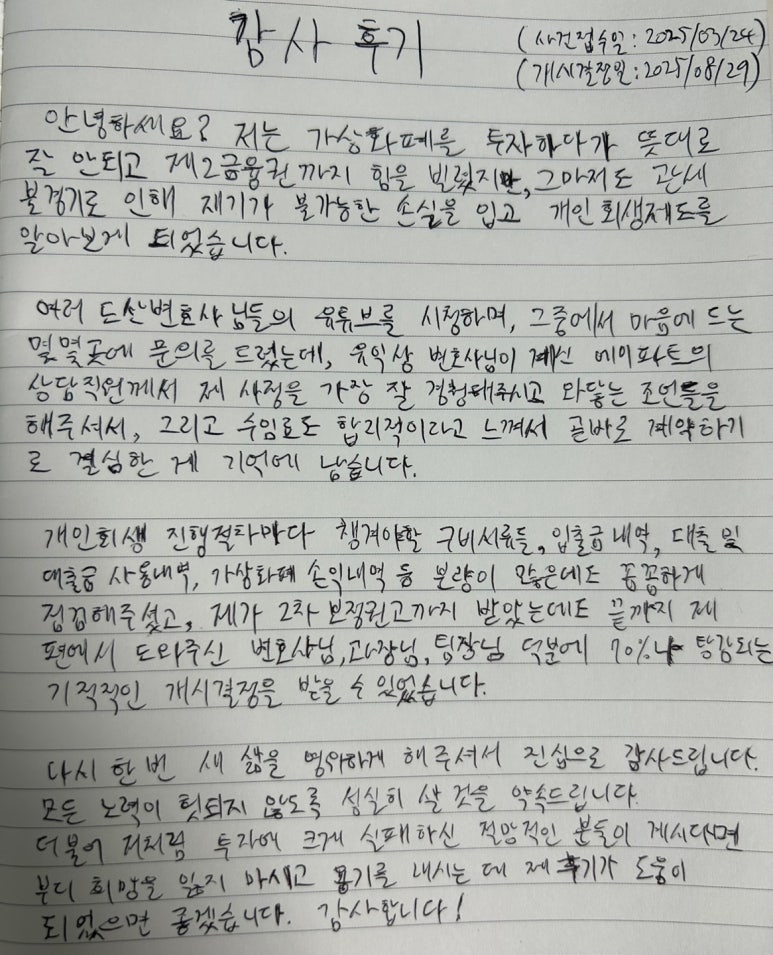 감사 후기
(사건접수일: 2025/03/24)
(개시결정일: 2025/08/29)
안녕하세요? 저는 가상화폐를 투자하다가 뜻대로
잘 안되고 제2금융권까지 힘을 빌렸지만, 그마저도 관세
불경기로 인해 재기가 불가능한 손실을 입고 개인회생제도를
알아보게 되었습니다.
여러 도산변호사님들의 유튜브를 시청하며, 그중에서 마음에 드는
몇몇곳에 문의를 드렸는데, 유익상 변호사님이 계신 에이파트의
상담직원께서 제 사정을 가장 잘 경청해주시고 와닿는 조언들을
해주셔서, 그리고 수임료도 합리적이라고 느껴서 곧바로 계약하기
로 결심한 게 기억에 남습니다.
개인회생 진행절차마다 챙겨야할 구비서류들, 입출금내역, 대출 및
대출금 사용내역, 가상화폐 손익내역 등 분량이 많은데도 꼼꼼하게
점검해주셨고, 제가 2차 보정권고까지 받았는데도 끝까지 제
편에서 도와주신 변호사님, 과장님, 팀장님 덕분에 70%나 탕감되는
기적적인 개시결정을 받을 수 있었습니다.
다시 한번 새 삶을 영위하게 해주셔서 진심으로 감사드립니다.
모든 노력이 헛되지 않도록 성실히 살 것을 약속드립니다.
더불어 저처럼 투자에 크게 실패하신 절망적인 분들이 계시다면
부디 희망을 잃지 마시고 용기를 내시는 데 제 후기가 도움이
되었으면 좋겠습니다. 감사합니다!